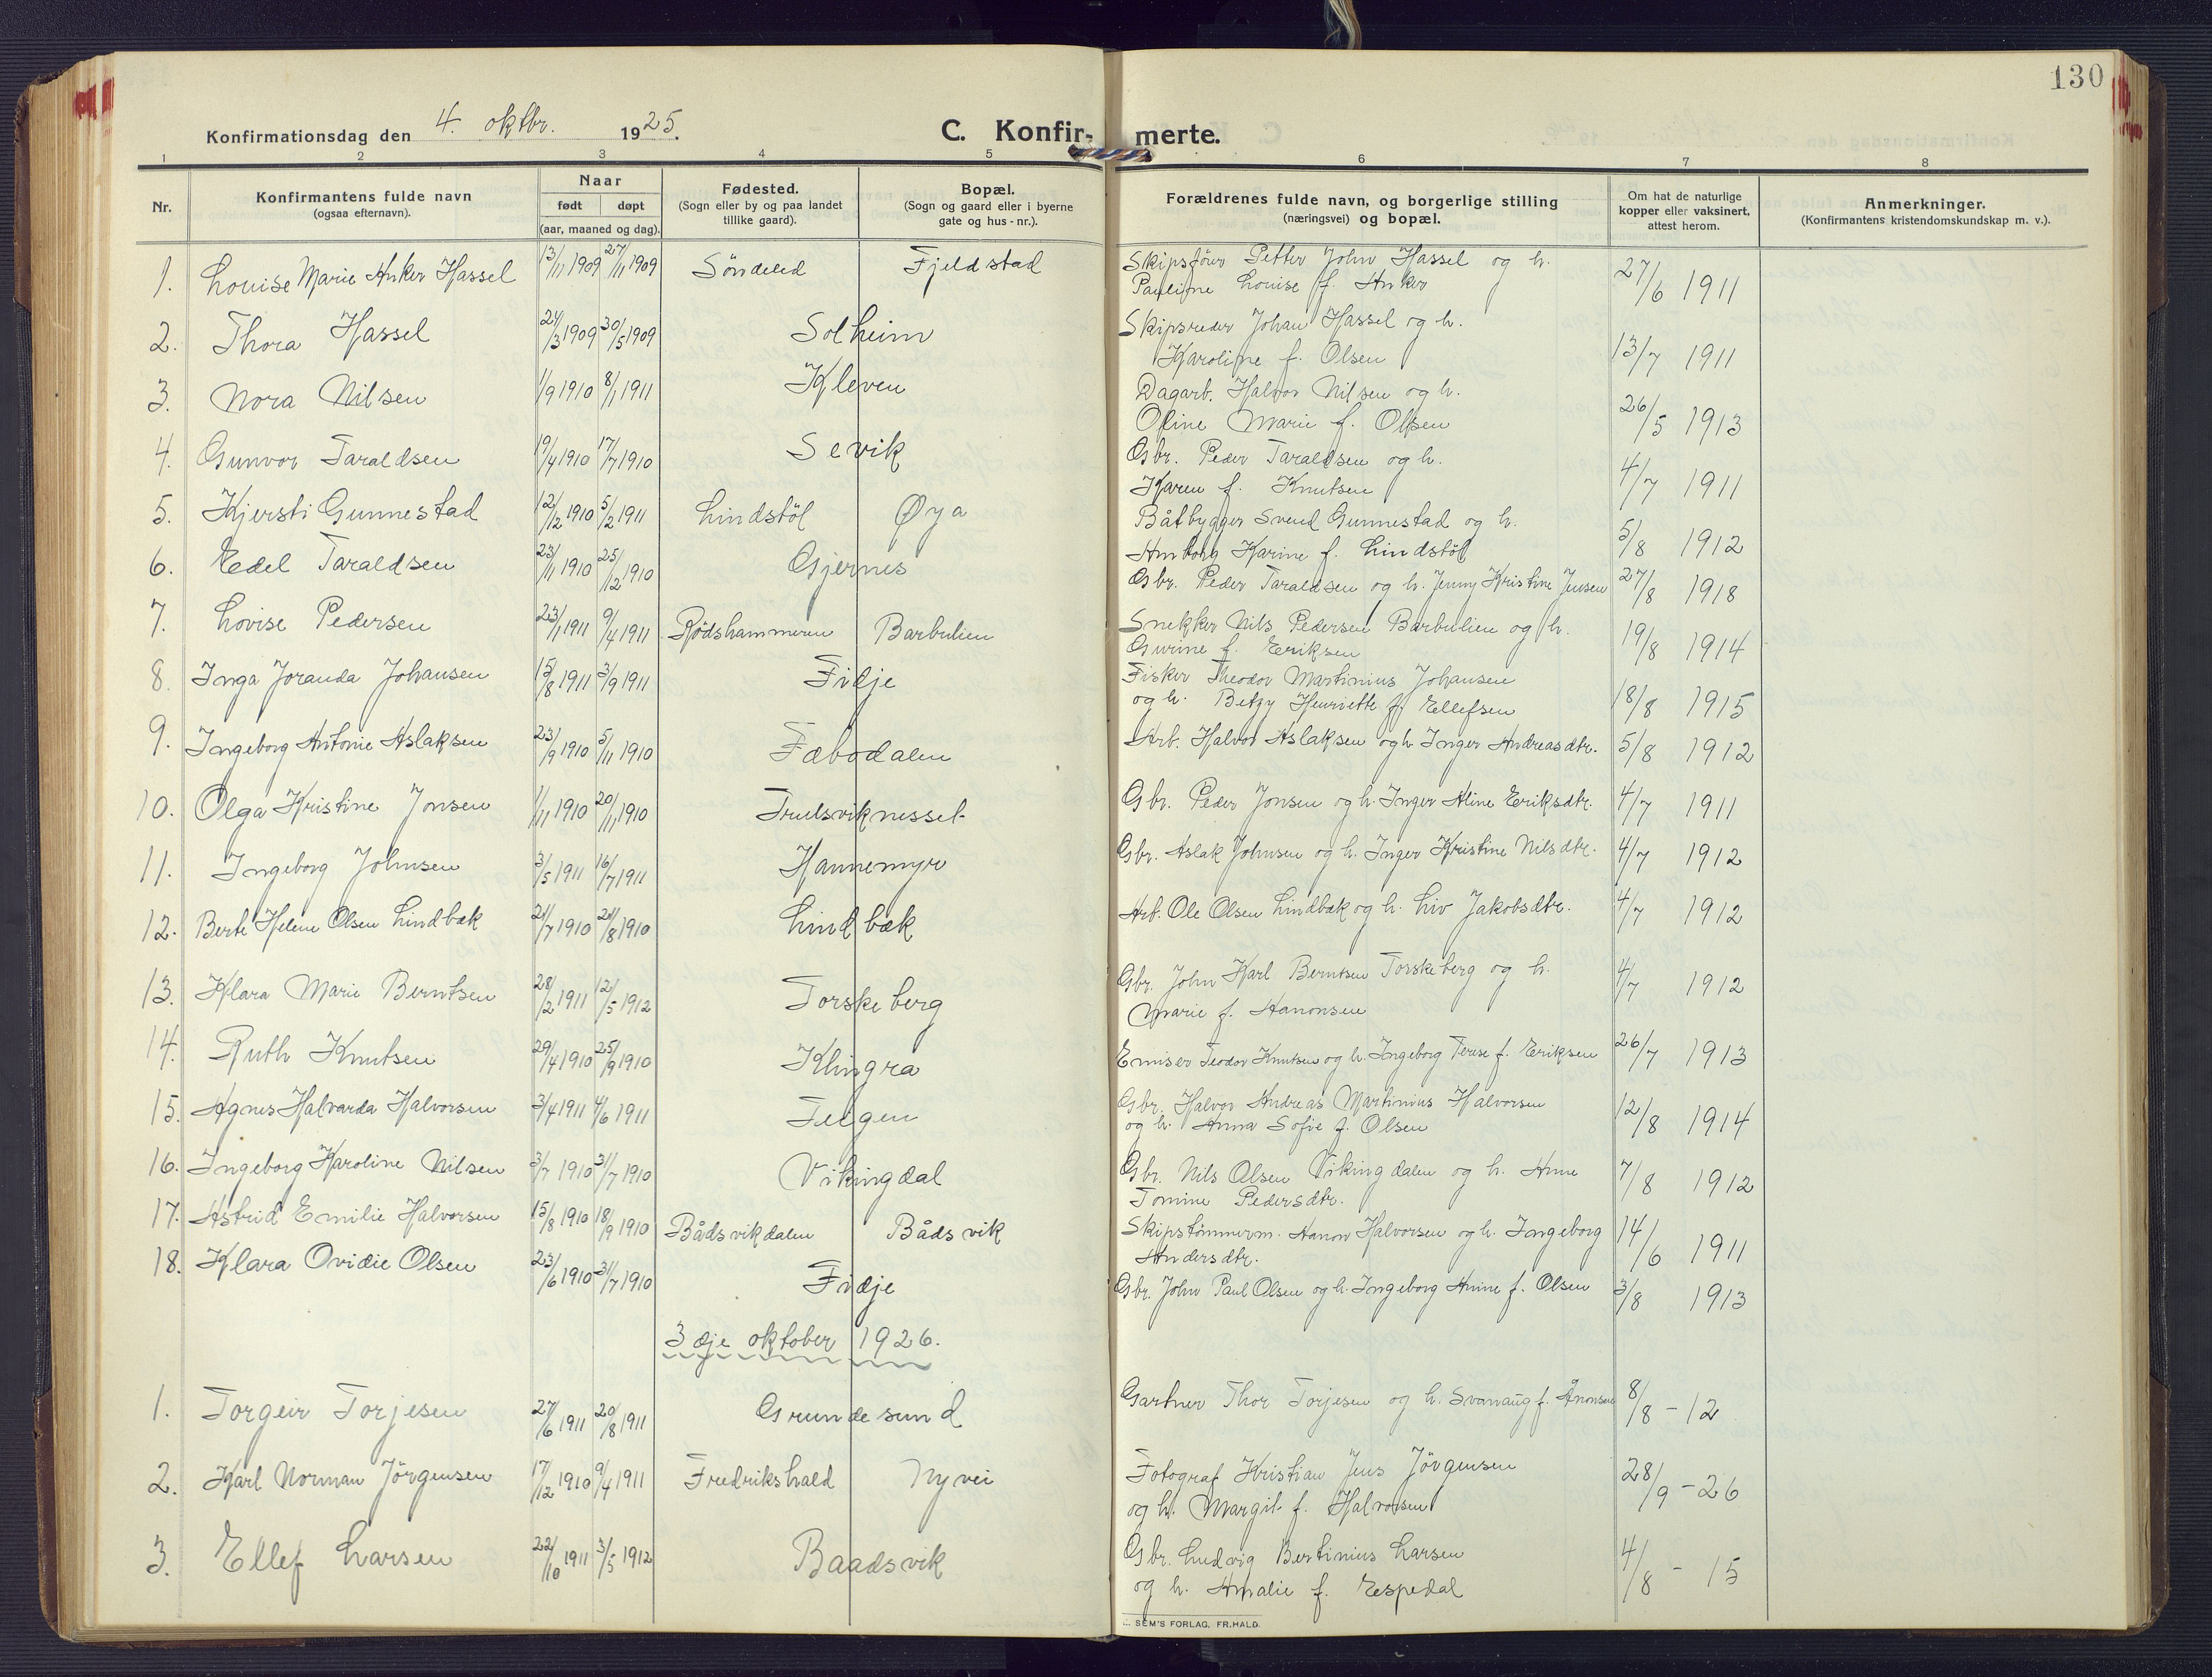 130
Konfirmationsdag den 4. oktbr. 1925.
C. Konfir- merte.
1 2 3 4 5 6 7 8
Nr.
Konfirmantens fulde navn
(ogsaa efternavn).
Naar
født døpt
(aar, maaned og dag).
Fødested.
(Sogn eller by og paa landet
tillike gaard).
Bopæl.
(Sogn og gaard eller i byerne
gate og hus-nr.).
Forældrenes fulde navn, og borgerlige stilling
(næringsvei) og bopæl.
Om hat de naturlige
kopper eller vaksinert,
attest herom.
Anmerkninger.
(Konfirmantens kristendomskundskap m. v.).
1. Louise Marie Anker Hassel 13/11 1909 27/11 1909 Søndeled Fjeldstad Skipsfører Petter John Hassel og h. 27/6 1911
Pauline Louise f. Anker
2. Thora Hassel 24/3 1909 30/5 1909 Solheim Skipsreder Johan Hassel og h. 13/7 1911
Karoline f. Olsen
3. Nora Nilsen 1/9 1910 8/1 1911 Kleven Dagarb. Halvor Nilsen og h. 26/5 1913
Oline Marie f. Olsen
4. Gunvor Taraldsen 19/4 1910 17/7 1910 Sevik Gbr. Peder Taraldsen og h. 4/7 1911
Karen f. Knutsen
5. Kjersti Gunnestad 12/12 1910 5/2 1911 Lindstøl Øya Båtbygger Svend Gunnestad og h. 5/8 1912
Amborg Karine f. Lindstøl
6. Edel Taraldsen 23/11 1910 25/12 1910 Gjernes Gbr. Peder Taraldsen og h. Jenny Kristine Jensen 27/8 1918
7. Lovise Pedersen 23/1 1911 9/4 1911 Rødshammeren Barbulien Snekker Nils Pedersen Barbulien og h. 19/8 1914
Gurine f. Eriksen
8. Inga Joranda Johansen 15/8 1911 3/9 1911 Fidje Fisker Theodor Martinius Johansen
og h. Betzy Henriette f. Ellefsen 18/8 1915
9. Ingeborg Antonie Aslaksen 23/9 1910 5/11 1910 Fæbodalen Arb. Halvor Aslaksen og h. Inger Andreasdtr. 5/8 1912
10. Olga Kristine Jonsen 1/11 1910 20/11 1910 Truelsviknesset Gbr. Peder Jonsen og h. Inger Aline Eriksdtr. 4/7 1911
11. Ingeborg Johnsen 3/5 1911 16/7 1911 Hannemyr Gbr. Aslak Johnsen og h. Inger Kristine Nilsdtr. 4/7 1912
12. Berte Helene Olsen Lindbæk 21/7 1910 21/8 1910 Lindbæk Arb. Ole Olsen Lindbæk og h. Liv Jakobsdtr. 4/7 1912
13. Klara Marie Berntsen 28/2 1911 12/5 1912 Torskeberg Gbr. John Karl Berntsen Torskeberg og h. 4/7 1912
Marie f. Hanonsen
14. Ruth Knutsen 29/4 1910 25/9 1910 Klingra Teodor Knutsen og h. Ingeborg Terese f. Eriksen 26/7 1913
15. Agnes Halvarda Halvorsen 3/4 1911 4/6 1911 Felgen Gbr. Halvor Andreas Martinius Halvorsen 12/8 1914
og h. Anna Sofie f. Olsen
16. Ingeborg Karoline Nilsen 3/7 1910 31/7 1910 Vikingdal Gbr. Nils Olsen Vikingdalen og h. Anne 7/8 1912
Tomine Pedersdtr.
17. Astrid Emilie Halvorsen 15/8 1910 18/9 1910 Bådsvikdalen Bådsvik Skipstømmerm. Hanon Halvorsen og h. Ingeborg 14/6 1911
Andersdtr.
18. Klara Ovidie Olsen 23/6 1910 31/7 1910 Fidje Gbr. John Paul Olsen og h. Ingeborg Anine f. Olsen 3/8 1913
3dje oktober 1926.
1. Torgeir Torjesen 27/6 1911 20/8 1911 Grundesund Gartner Thor Torjesen og h. Svanaug f. Ånonsen 8/8 - 12
2. Karl Norman Jørgensen 17/12 1910 9/4 1911 Fredrikshald Nyvei Fotograf Kristian Jens Jørgensen 28/9 - 26
og h. Margit f. Halvorsen
3. Ellef Larsen 22/10 1911 3/5 1912 Baadsvik Gbr. Ludvig Bertinius Larsen 4/8 - 15
og h. Amalie f. Espedal
SEM'S FORLAG, FR.HALD.